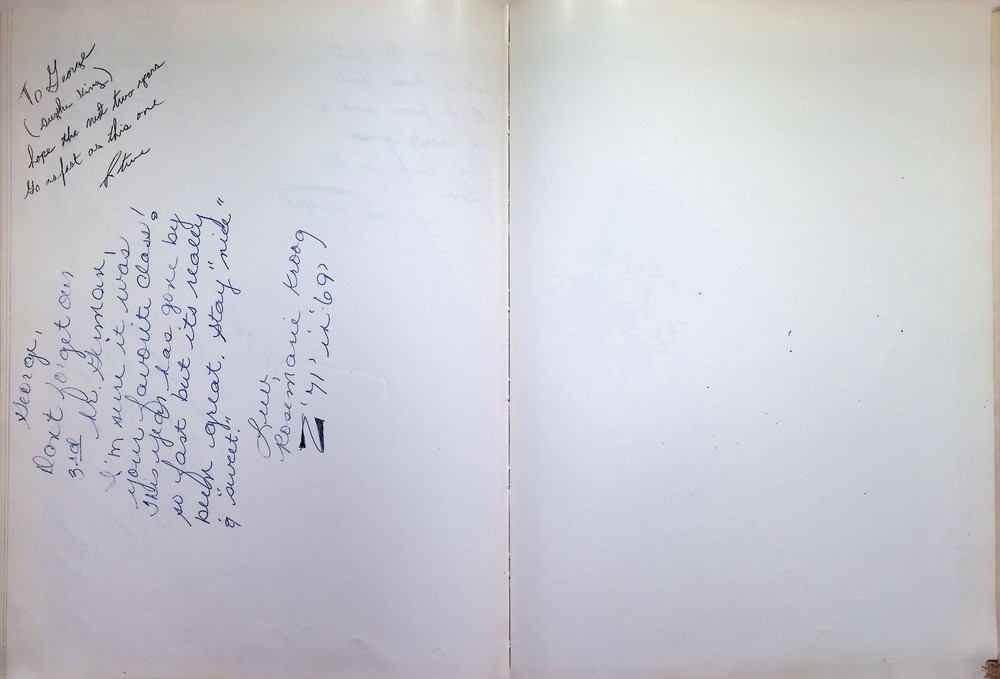 To George
(sushi king)
hope the next two years
Go as fast as this one
George,
Don't forget our
3rd hr. German,
I'm sure it was
your favorite class!
This year has gone by
so fast but its really
been great. Stay "nice"
& "sweet."
Luv
Rosemarie Kroog
'71' in '69'